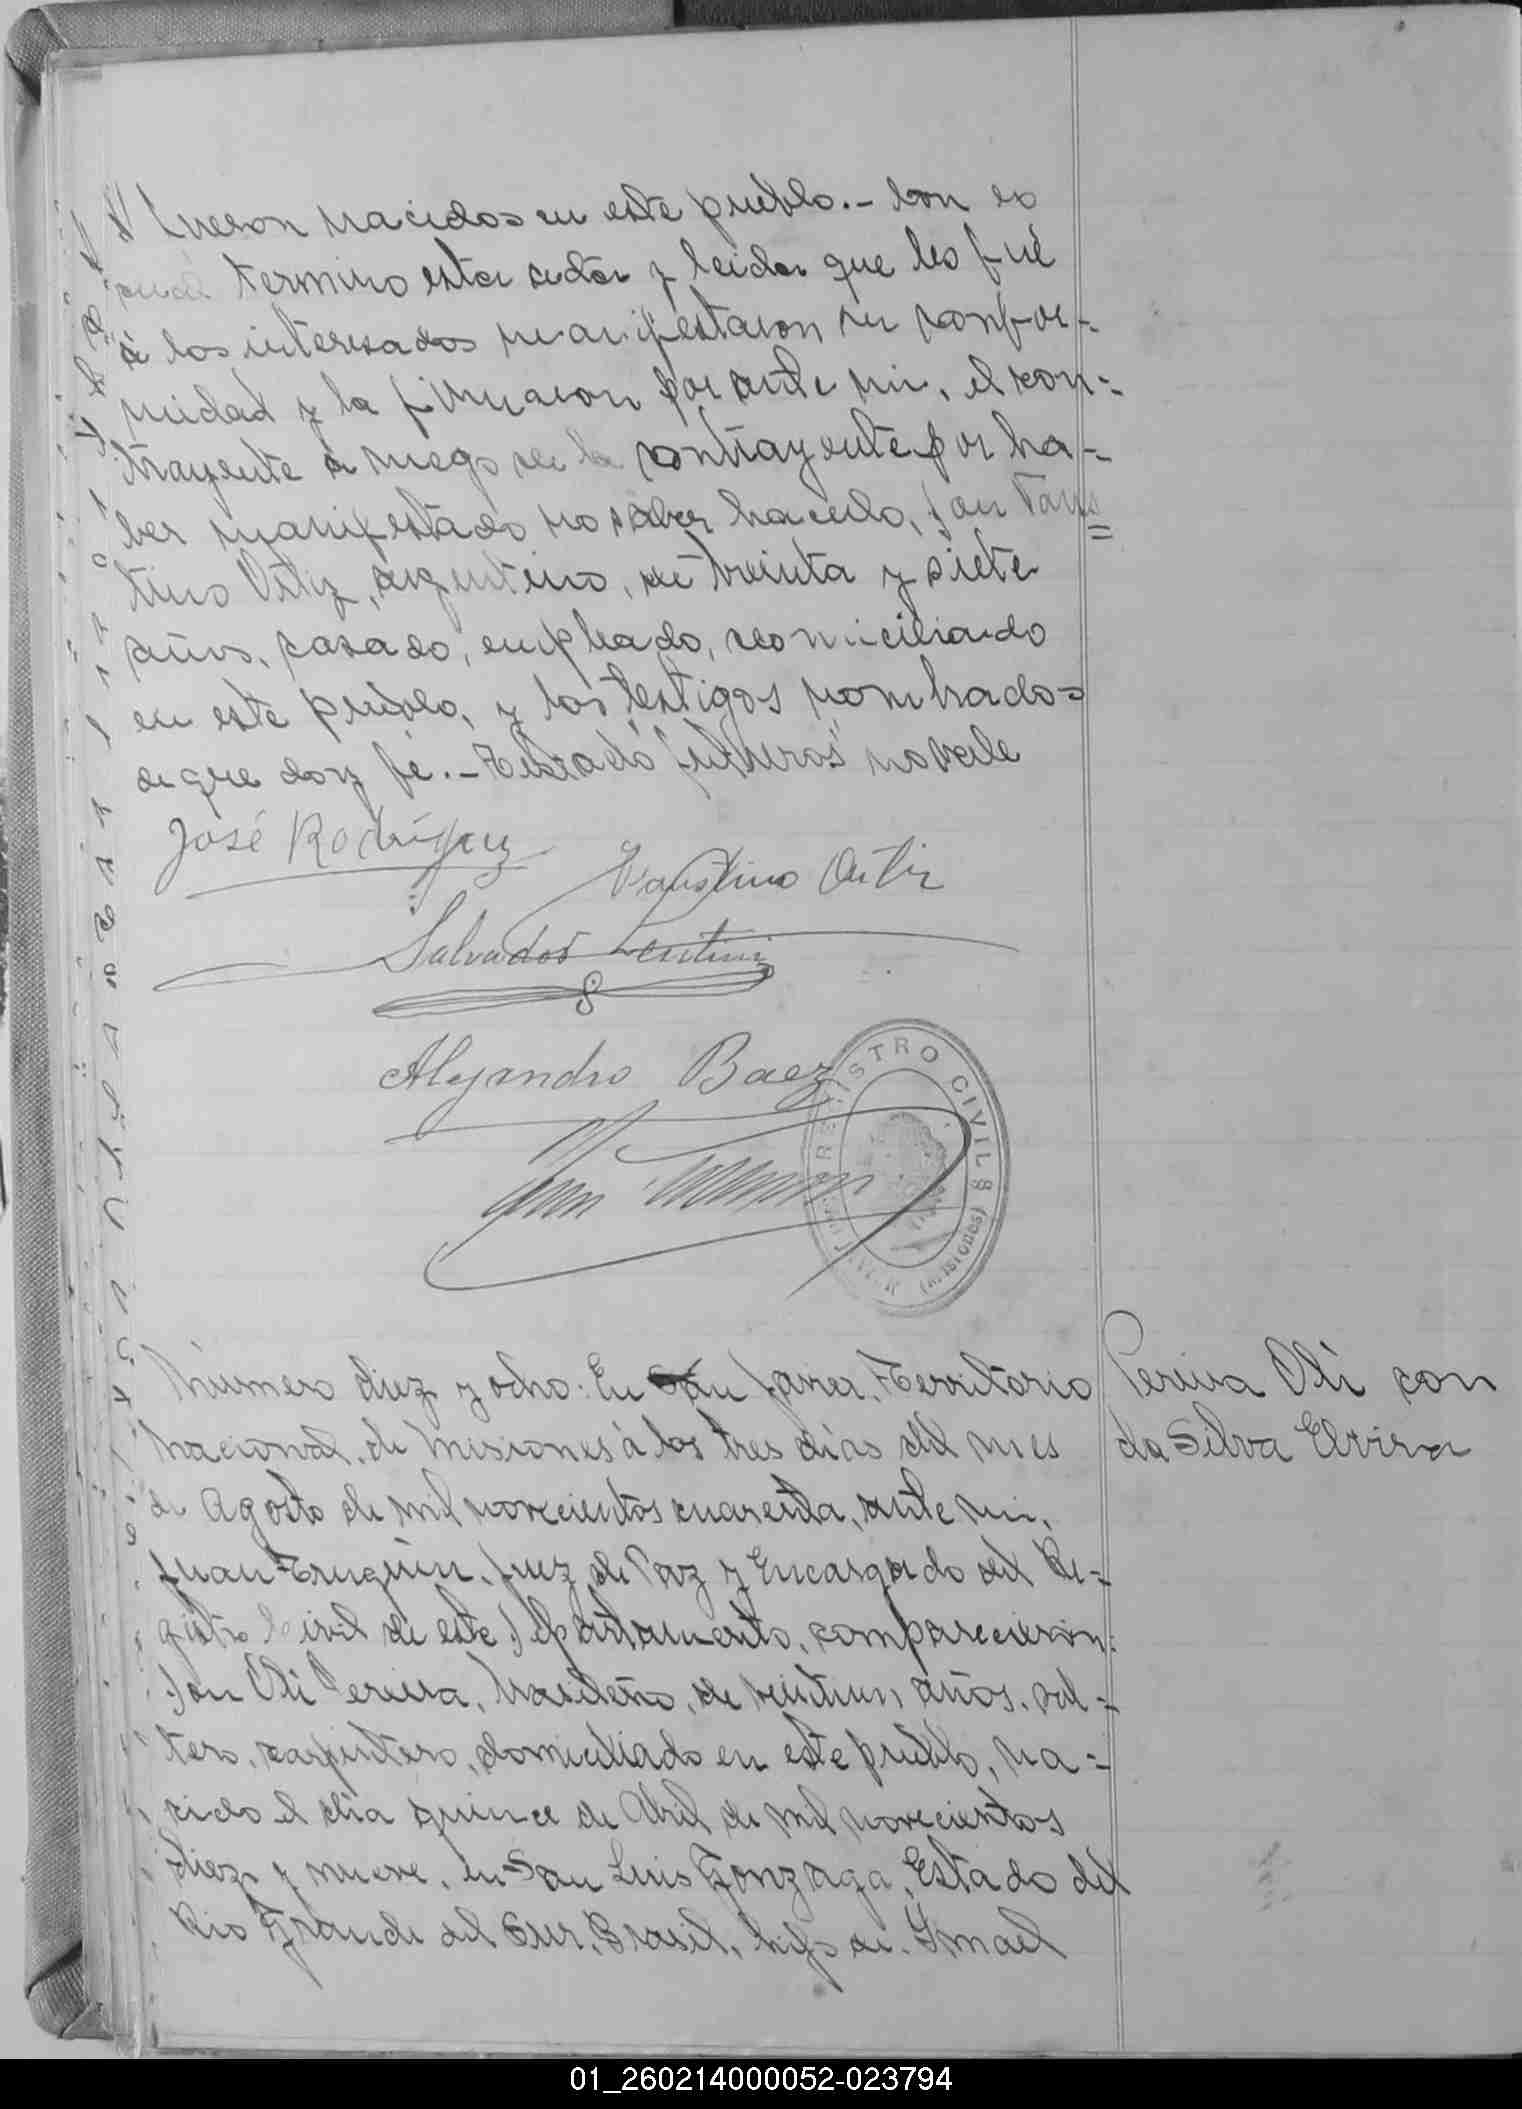 fueron nacidos en este pueblo.- Con lo
cual termino esta acta y leida que les fué
á los interesados manifestaron su confor-
midad y la firmaron por ante mi, el con-
trayente a ruego de la contrayente por ha-
ber manifestado no saber hacerlo, Don Faus=
tino Ortiz, argentino, de treinta y siete
años, casado, empleado, domiciliado
en este pueblo, y los testigos nombrados
de que doy fé.- Testado "futuros" no vale
José Rodríguez
Faustino Ortiz
Salvador Lentini
Alejandro Baez
REGISTRO CIVIL
(Misiones)
Número diez y ocho: En San Javier, Territorio
Nacional, de Misiones á los tres días del mes
de Agosto de mil novecientos cuarenta, ante mi,
Juan Juez de Paz y Encargado del Re-
gistro Civil de este Departamento, comparecieron:
Don Oli Pereira, brasileño, de veintiun años, sol-
tero, carpintero, domiciliado en este pueblo, na-
cido el día quince de Abril de mil novecientos
diez y nueve, en San Luis Gonzaga, Estado del
Rio Grande del Sur, Brasil, hijo de Ismael
Pereira Oli con
da Silva Elvira
01_260214000052-023794